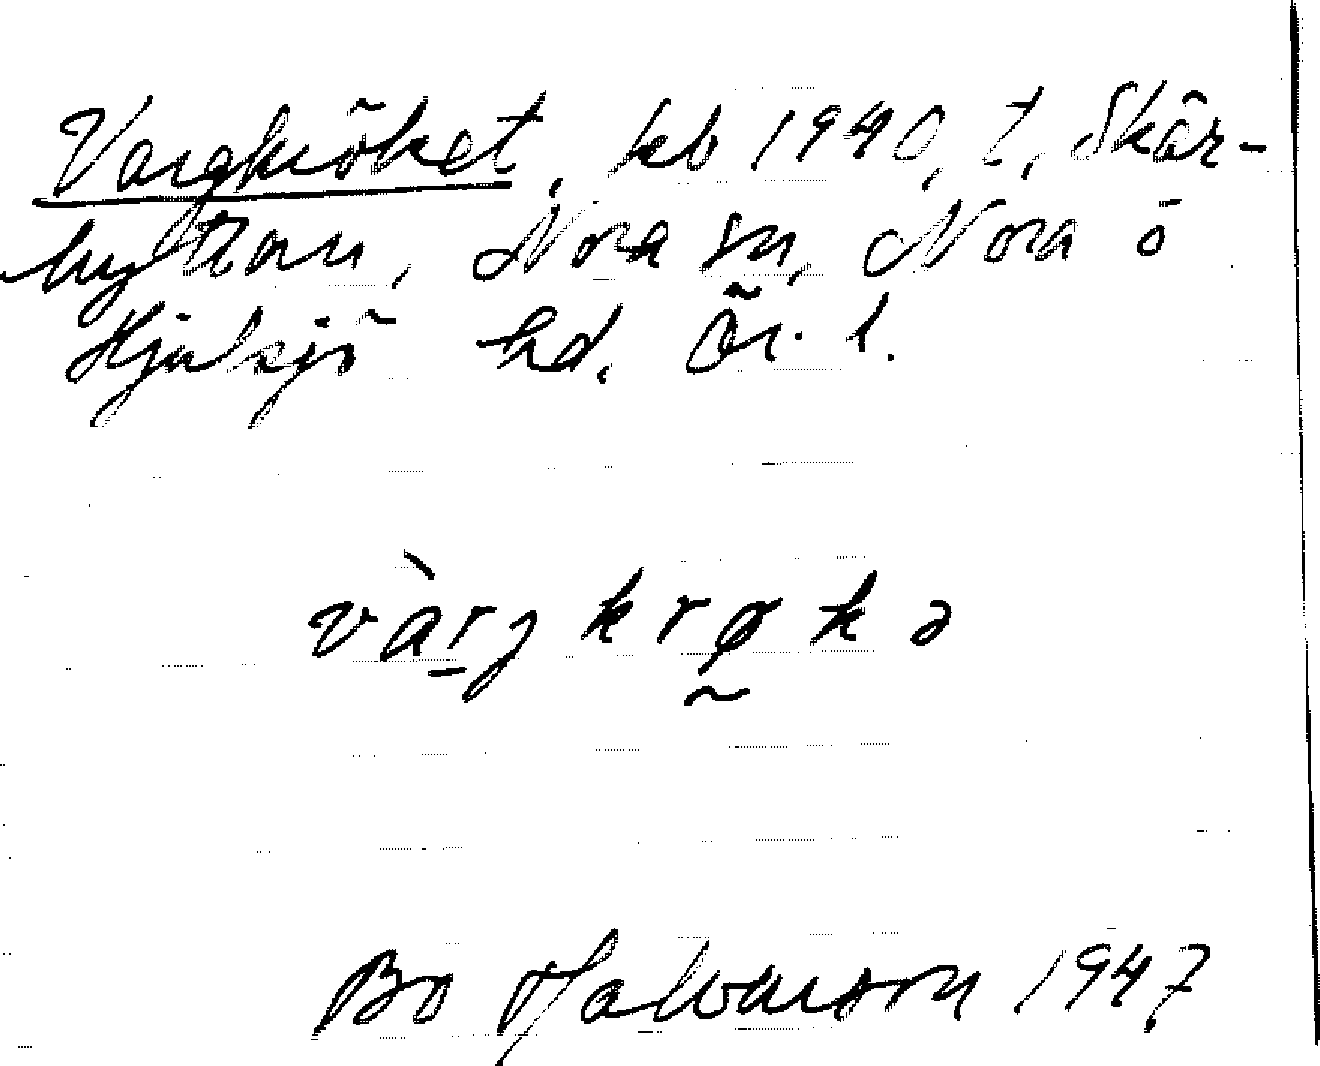 Vargkröket, kb 1940, t. Skär-
hyttan, Nora sn, Nora o
Hjulsjö hd. Ör. l.
vàrgkrøkə
Bo Halvarson 1947